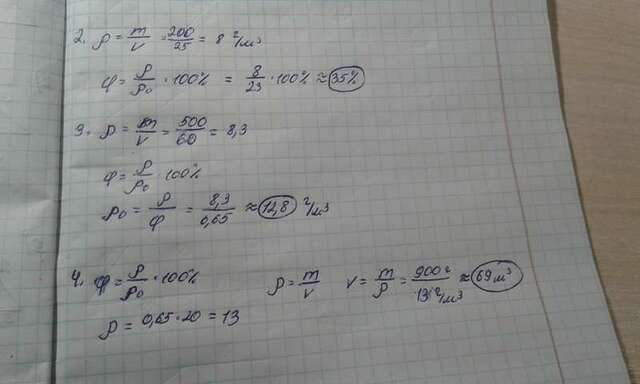 2. ρ = m/v = 200/25 = 8 г/м³
φ = ρ/ρ₀ · 100% = 8/23 · 100% ≈ 35%
3. ρ = m/v = 500/60 = 8,3
φ = ρ/ρ₀ · 100%
ρ₀ = ρ/φ = 8,3/0,65 ≈ 12,8 г/м³
4. φ = ρ/ρ₀ · 100% ρ = m/v v = m/ρ = 900г/13 г/м³ ≈ 69 м³
ρ = 0,65 · 20 = 13